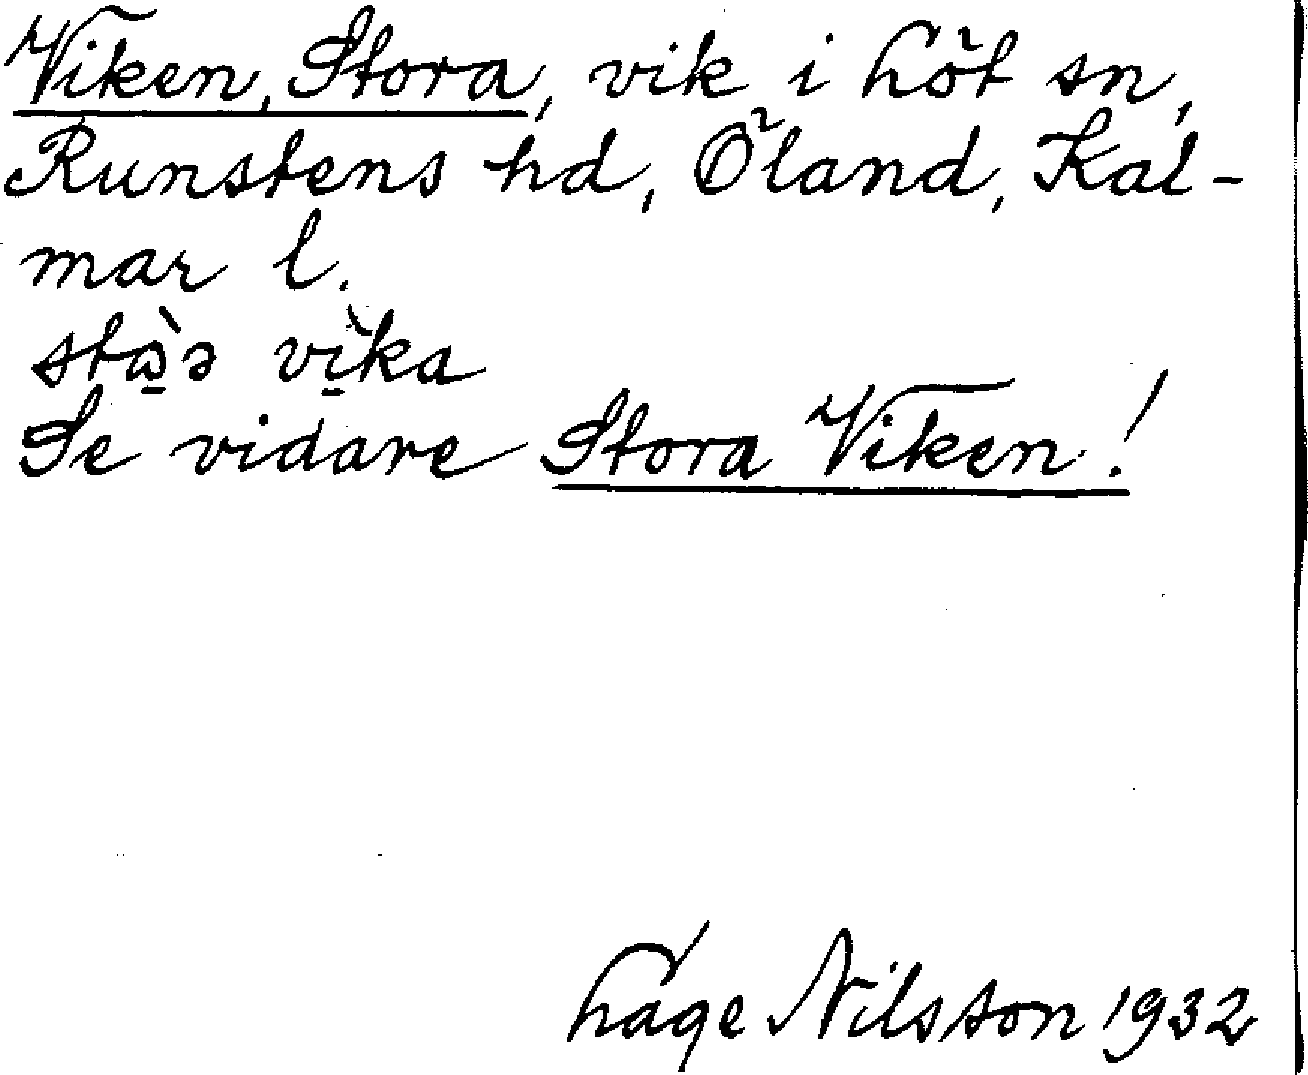 Viken, Stora, vik i Löt sn,
Runstens hd, Öland, Kal-
mar l.
stὼ̱ə vì̱ka
Se vidare Stora Viken!
Åage Nilsson 1932